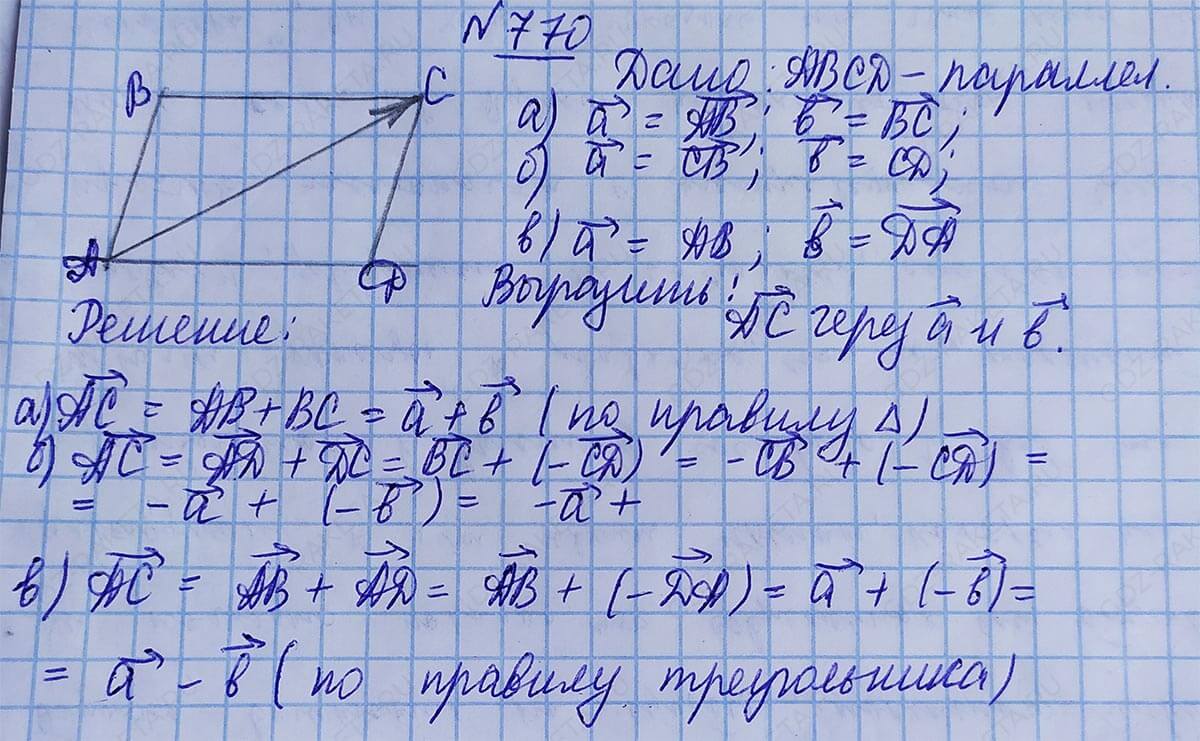 №770
Дано: ABCD – параллел.
а) a⃗ = AB⃗; b⃗ = BC⃗;
б) a⃗ = CB⃗; b⃗ = CD⃗;
в) a⃗ = AB; b⃗ = DA⃗
B C
A D
Выразить:
AC⃗ через a⃗ и b⃗.
Решение:
а) AC⃗ = AB + BC = a⃗ + b⃗ (по правилу Δ)
б) AC⃗ = AD⃗ + DC⃗ = BC⃗ + (-CD⃗) = -CB⃗ + (-CD⃗) =
= -a⃗ + (-b⃗) = -a⃗ +
в) AC⃗ = AB⃗ + AD⃗ = AB⃗ + (-DA⃗) = a⃗ + (-b⃗) =
= a⃗ - b⃗ (по правилу треугольника)